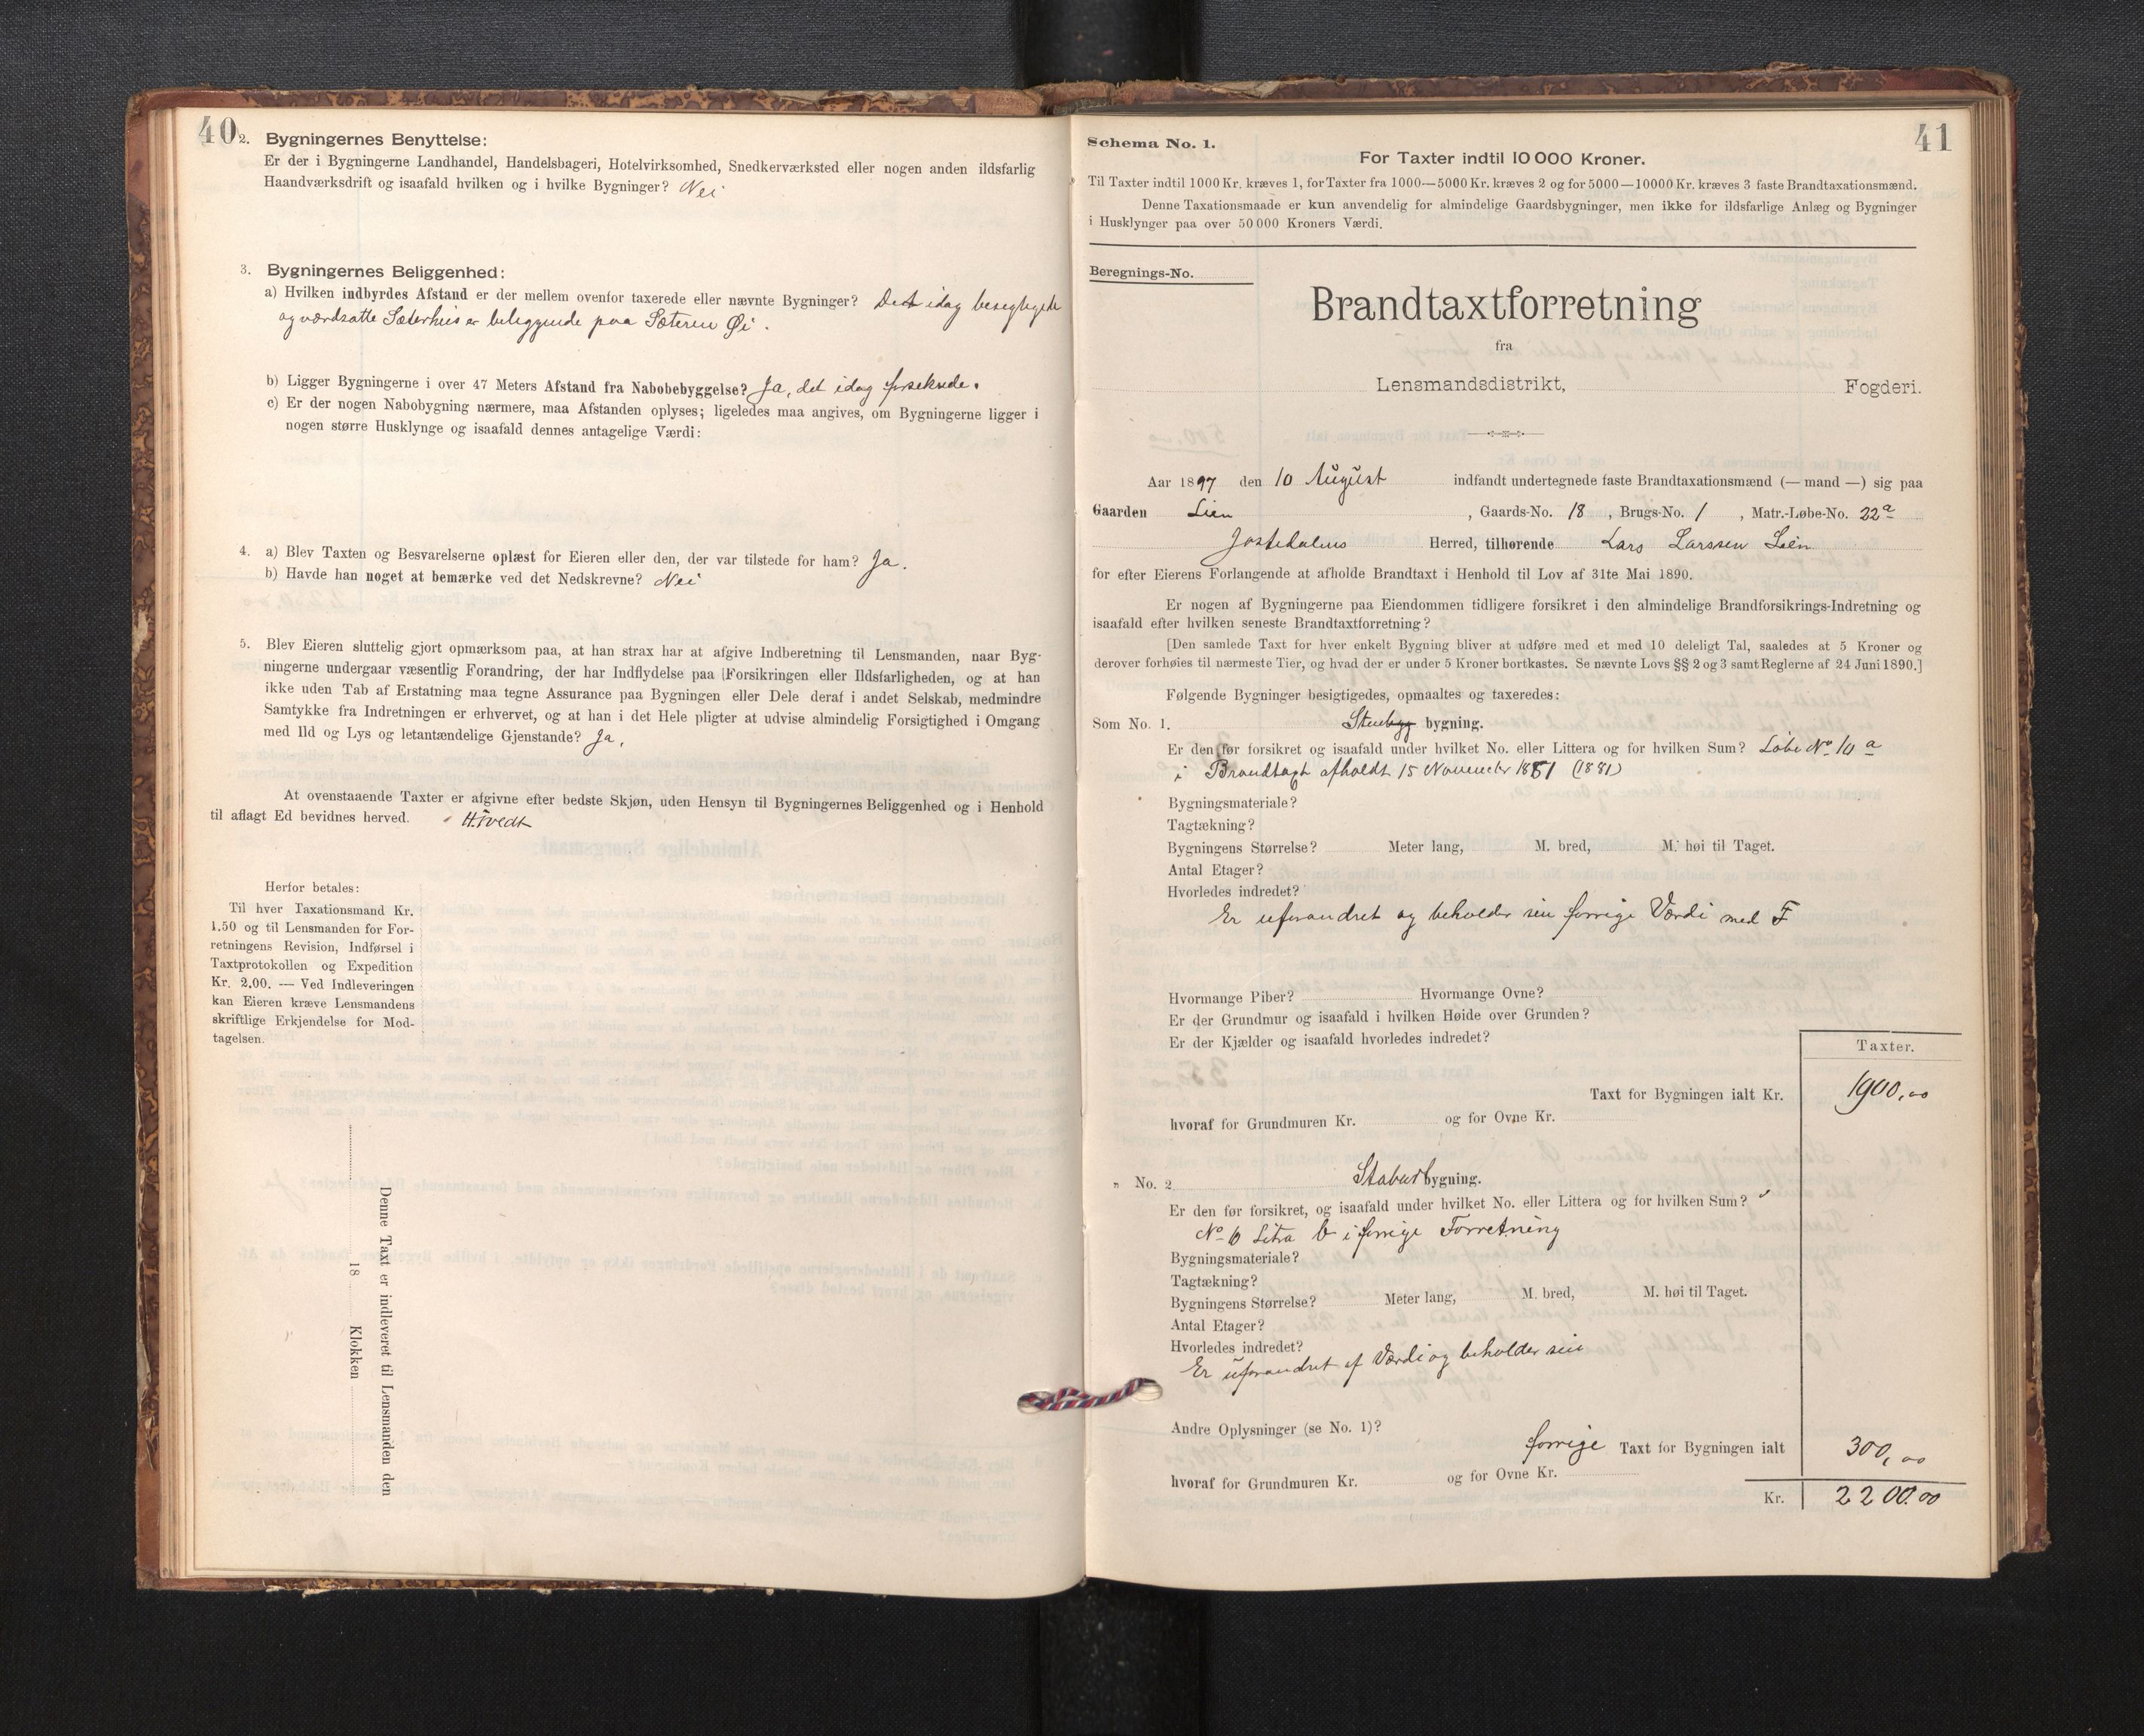 40
2. Bygningernes Benyttelse:
Er der i Bygningerne Landhandel, Handelsbageri, Hotelvirksomhed, Snedkerværksted eller nogen anden ildsfarlig
Haandværksdrift og isaafald hvilken og i hvilke Bygninger? Nei
3. Bygningernes Beliggenhed:
a) Hvilken indbyrdes Afstand er der mellem ovenfor taxerede eller nævnte Bygninger? Det idag besigtigede
og værdsatte Sæterhus er beliggende paa Sæteren Øi.
b) Ligger Bygningerne i over 47 Meters Afstand fra Nabobebyggelse? Ja, det idag forsekrede.
c) Er der nogen Nabobygning nærmere, maa Afstanden oplyses; ligeledes maa angives, om Bygningerne ligger i
nogen større Husklynge og isaafald dennes antagelige Værdi:
4. a) Blev Taxten og Besvarelserne oplæst for Eieren eller den, der var tilstede for ham? Ja.
b) Havde han noget at bemærke ved det Nedskrevne? Nei
5. Blev Eieren sluttelig gjort opmærksom paa, at han strax har at afgive Indberetning til Lensmanden, naar Byg-
ningerne undergaar væsentlig Forandring, der har Indflydelse paa [Forsikringen eller Ildsfarligheden, og at han
ikke uden Tab af Erstatning maa tegne Assurance paa Bygningen eller Dele deraf i andet Selskab, medmindre
Samtykke fra Indretningen er erhvervet, og at han i det Hele pligter at udvise almindelig Forsigtighed i Omgang
med Ild og Lys og letantændelige Gjenstande? Ja,
At ovenstaaende Taxter er afgivne efter bedste Skjøn, uden Hensyn til Bygningernes Beliggenhed og i Henhold
til aflagt Ed bevidnes herved. H. Tvedt
Herfor betales:
Til hver Taxationsmand Kr.
1.50 og til Lensmanden for For-
retningens Revision, Indførsel i
Taxtprotokollen og Expedition
Kr. 2.00. — Ved Indleveringen
kan Eieren kræve Lensmandens
skriftlige Erkjendelse for Mod-
tagelsen.
Denne Taxt er indleveret til Lensmanden den
18 Klokken
41
Schema No. 1.
For Taxter indtil 10 000 Kroner.
Til Taxter indtil 1000 Kr. kræves 1, for Taxter fra 1000—5000 Kr. kræves 2 og for 5000—10000 Kr. kræves 3 faste Brandtaxationsmænd.
Denne Taxationsmaade er kun anvendelig for almindelige Gaardsbygninger, men ikke for ildsfarlige Anlæg og Bygninger
i Husklynger paa over 50 000 Kroners Værdi.
Beregnings-No.
Brandtaxtforretning
fra
Lensmandsdistrikt, Fogderi.
Aar 1897 den 10 August indfandt undertegnede faste Brandtaxationsmænd (— mand —) sig paa
Gaarden Lien, Gaards-No. 18, Brugs-No. 1, Matr.-Løbe-No. 22a
Jostedalens Herred, tilhørende Lars Larssen Lien
for efter Eierens Forlangende at afholde Brandtaxt i Henhold til Lov af 31te Mai 1890.
Er nogen af Bygningerne paa Eiendommen tidligere forsikret i den almindelige Brandforsikrings-Indretning og
isaafald efter hvilken seneste Brandtaxtforretning?
[Den samlede Taxt for hver enkelt Bygning bliver at udføre med et med 10 deleligt Tal, saaledes at 5 Kroner og
derover forhøies til nærmeste Tier, og hvad der er under 5 Kroner bortkastes. Se nævnte Lovs §§ 2 og 3 samt Reglerne af 24 Juni 1890.]
Følgende Bygninger besigtigedes, opmaaltes og taxeredes:
Som No. 1. Stuebygbygning.
Er den før forsikret og isaafald under hvilket No. eller Littera og for hvilken Sum? Løbe No 10 a
i Brandtaxt afholdt 15 November 1881 (1881)
Bygningsmateriale?
Tagtækning?
Bygningens Størrelse? Meter lang, M. bred, M. høi til Taget.
Antal Etager?
Hvorledes indredet?
Er uforandret og beholder sin forrige Værdi med F
Hvormange Piber? Hvormange Ovne?
Er der Grundmur og isaafald i hvilken Høide over Grunden?
Er der Kjælder og isaafald hvorledes indredet?
Taxter.
Taxt for Bygningen ialt Kr. 1900,00
hvoraf for Grundmuren Kr. og for Ovne Kr.
" No. 2 Staburbygning.
Er den før forsikret, og isaafald under hvilket No. eller Littera og for hvilken Sum?
No 10 Litra b i forrige Forretning
Bygningsmateriale?
Tagtækning?
Bygningens Størrelse? Meter lang, M. bred, M. høi til Taget.
Antal Etager?
Hvorledes indredet?
Er uforandret af Værdi og beholder sin
Andre Oplysninger (se No. 1)?
forrige Taxt for Bygningen ialt 300,00
hvoraf for Grundmuren Kr. og for Ovne Kr.
Kr. 2200.00